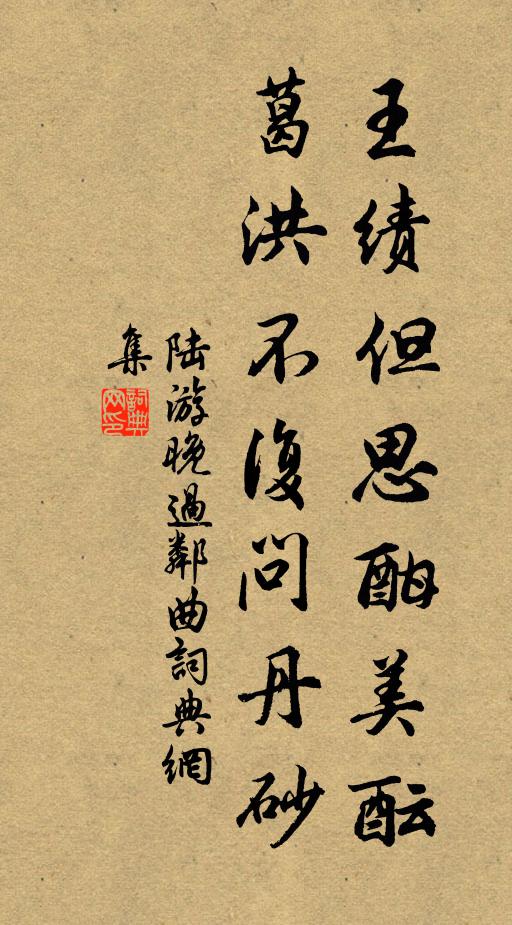 王绩但思酭美酝
葛洪不復问丹砂
陆游晚過鄰曲詞典網
集
詞典
网印